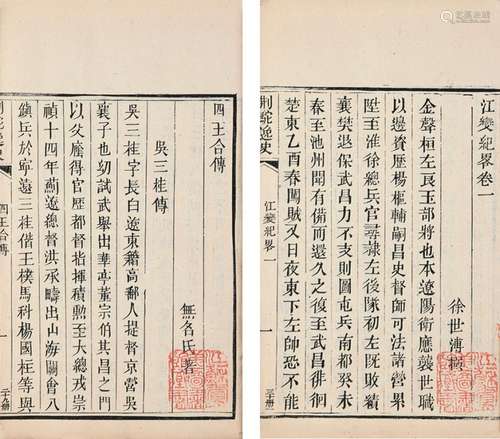 江變紀畧卷一
徐世溥輯
金聲桓左良玉部將也本遼陽衛應襲世職
以邊資歷楊樞輔嗣昌史督師可法諸營累
陞至淮徐總兵官尋隸左後隊初左既敗績
襄樊退保武昌力不支則圖屯兵南都癸未
春至池州聞有備而還久之復至武昌徘徊
楚東乙酉春闖賊又日夜東下左帥恐不能
荆駝逸史
江變紀畧一
一
四王合傳
無名氏著
吳三桂傳
吳三桂字長白遼東籍高郵人提督京營吳
襄子也幼試武舉出華亭董宗伯其昌之門
以父廕得官歷都督指揮積勲至大總戎崇
禎十四年薊遼總督洪承疇出山海關會八
鎮兵於寧遠三桂偕王樸馬科楊國柱等與
荆駝逸史
四王合傳
一